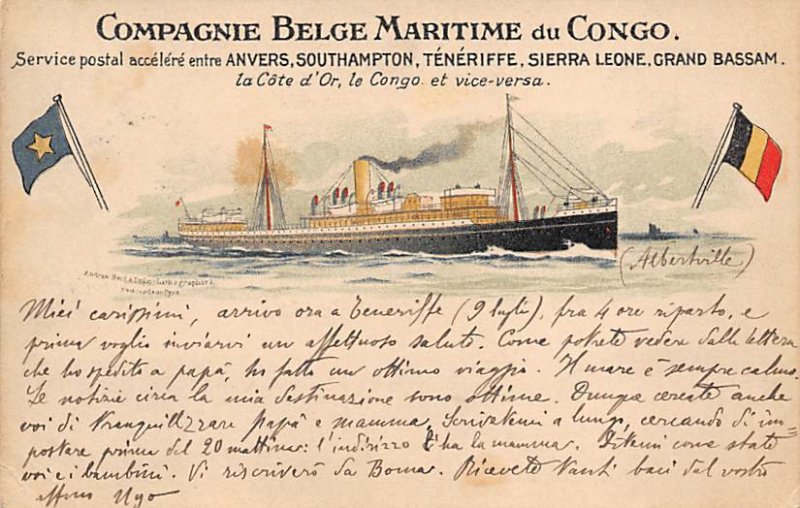 COMPAGNIE BELGE MARITIME du CONGO.
Service postal accéléré entre ANVERS, SOUTHAMPTON, TÉNÉRIFFE, SIERRA LEONE, GRAND BASSAM.
la Côte d'Or, le Congo et vice-versa.
(Albertville)
Andrew Reid & Co Ld
Newcastle on Tyne
Miei carissimi, arrivo ora a Teneriffe (9 luglio), fra 4 ore riparto, e
prima voglio inviarvi un affettuoso saluto. Come potrete vedere dalla lettera
che ho spedito a papà, ho fatto un ottimo viaggio. Il mare è sempre calmo.
Le notizie circa la mia destinazione sono ottime. Dunque cercate anche
voi di tranquillizzare papà e mamma. Scrivetemi a lungo, cercando di im=
postare prima del 20 mattina: l'indirizzo l'ha la mamma. Ditemi come state
voi e i bambini. Vi riscriverò da Boma. Ricevete tanti baci dal vostro
affmo Ugo